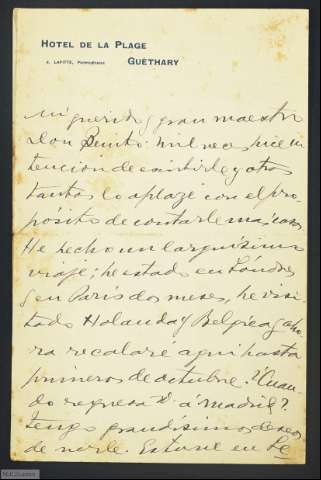 HOTEL DE LA PLAGE
J. LAFITE, Propriétaire GUÉTHARY
Mi querido y gran maestro
Don Benito: mil veces hice in
tención de escribirle y otras
tantas lo aplazé con el pro
pósito de contarle mas cosas.
He hecho un larguísimo
viaje; he estado en Lóndres
y en París dos meses, he visi
tado Holanda y Bélgica y aho
ra recalaré aquí hasta
primeros de octubre. ?Cuan
do regresa Vd. á Madrid?
Tengo grandísimos deseos
de verle. Estuve en